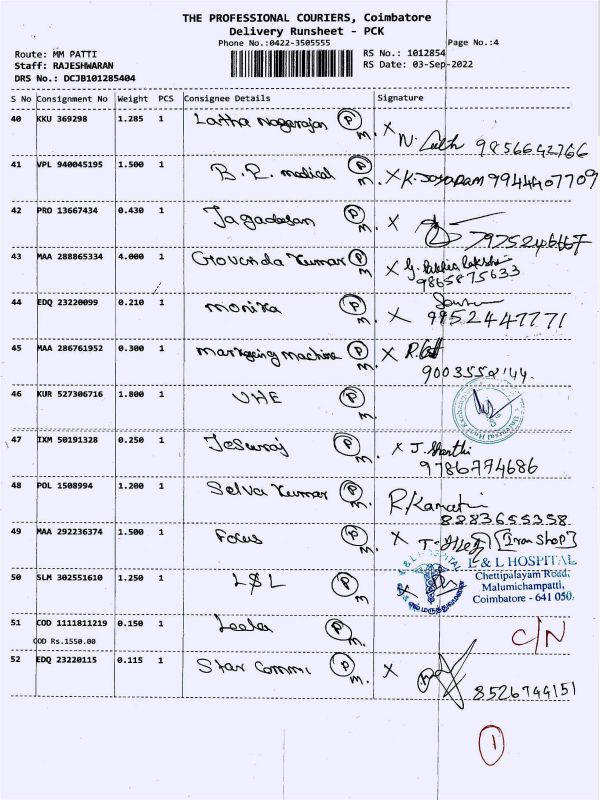 THE PROFESSIONAL COURIERS, Coimbatore
Delivery Runsheet - PCK
Phone No.:0422-3505555
Page No.:4
Route: MM PATTI
RS No.: 1012854
Staff: RAJESHWARAN
RS Date: 03-Sep-2022
DRS No.: DCJB101285404
S No Consignment No Weight PCS Consignee Details Signature
40 KKU 369298 1.285 1 Latha Nagarajan P M. X
N. Lath 9856642766
41 VPL 940045195 1.500 1 B.R. medical P M. X K. Jayaram 9944407709
42 PRO 13667434 0.430 1 Jagadesan P M X
7975246667
43 MAA 288865334 4.000 1 Govenda Kumar P M X
9865875633
44 EDQ 23220099 0.210 1 monika P M X
9952447771
45 MAA 286761952 0.300 1 markging machine P M X
9003552144.
46 KUR 527306716 1.800 1 UHE P M.
47 IXM 50191328 0.250 1 Jesuraj P M. X J. Shanthi
9786774686
48 POL 1508994 1.200 1 Selva Kumar P M.
8883655358
49 MAA 292236374 1.500 1 Focus P M. X [Iran Shop]
50 SLM 302551610 1.250 1 L&L P M. X
L & L HOSPITAL
L & L HOSPITAL
Chettipalayam Road,
Malumichampatti,
Coimbatore - 641 050.
51 COD 1111811219 0.150 1 Leela P M.
COD Rs.1550.00
C/N
52 EDQ 23220115 0.115 1 Star Commi P M. X
8526744151
1